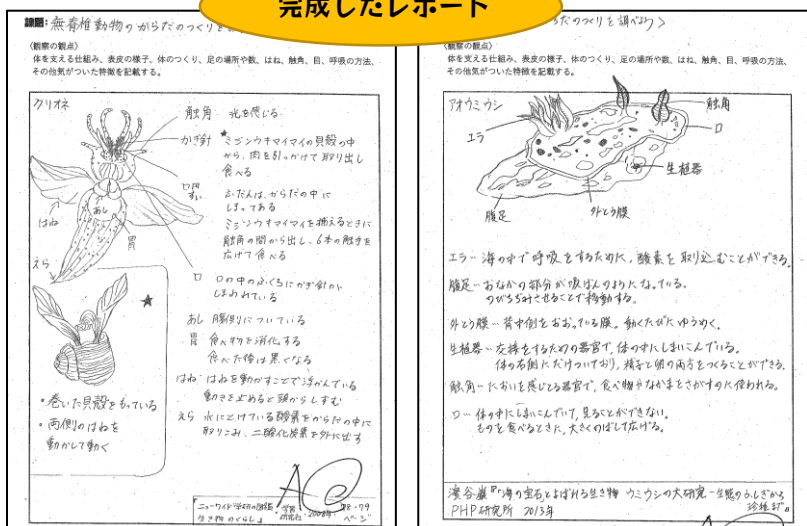 完成したレポート
課題:無脊椎動物のからだのつくりを
〈観察の観点〉
体を支える仕組み、表皮の様子、体のつくり、足の場所や数、はね、触角、目、呼吸の方法、
その他気がついた特徴を記載する。
クリオネ
触角 光を感じる
かぎ針 ★ミジンウキマイマイの貝殻の中
から、肉を引っかけて取り出し
食べる
ふだんは、からだの中に
しまってある
ミジンウキマイマイを捕えるときに
触角の間から出し、6本の触手を
広げて食べる
口 口の中のふくろにかぎ針が
しまわれている
あし 腹側についている
胃 食べ物を消化する
食べた後は黒くなる
はね はねを動かすことで浮かんでいる
動きを止めると頭からしずむ
えら 水にとけている酸素をからだの中に
取りこみ、二酸化炭素を外に出す
はね
あし
胃
えら
★
・巻いた貝殻をもっている
・両側のはねを
動かして動く
生き物のくらし
2008年
-79
ページ
らだのつくりを調べよう〉
〈観察の観点〉
体を支える仕組み、表皮の様子、体のつくり、足の場所や数、はね、触角、目、呼吸の方法、
その他気がついた特徴を記載する。
アオウミウシ
触角
口
エラ
生殖器
腹足
外とう膜
エラ…海の中で呼吸をするために、酸素を取り込むことができる。
腹足…おなかの部分が吸ばんのようになっている。
のびちぢみさせることで移動する。
外とう膜…背中側をおおっている膜。動くたびにゆらめく。
生殖器…交接をするための器官で、体の中にしまいこんでいる。
体の右側にだけついており、精子と卵の両方をつくることができる。
触角…においを感じとる器官で、食べ物やなかまをさがすのに使われる。
口…体の中にしまいこんでいて、見ることができない。
ものを食べるときに、大きくのばして広げる。
濱谷巌『「海の宝石」とよばれる生き物 ウミウシの大研究-生態のふしぎから
珍種まで』
PHP研究所 2013年